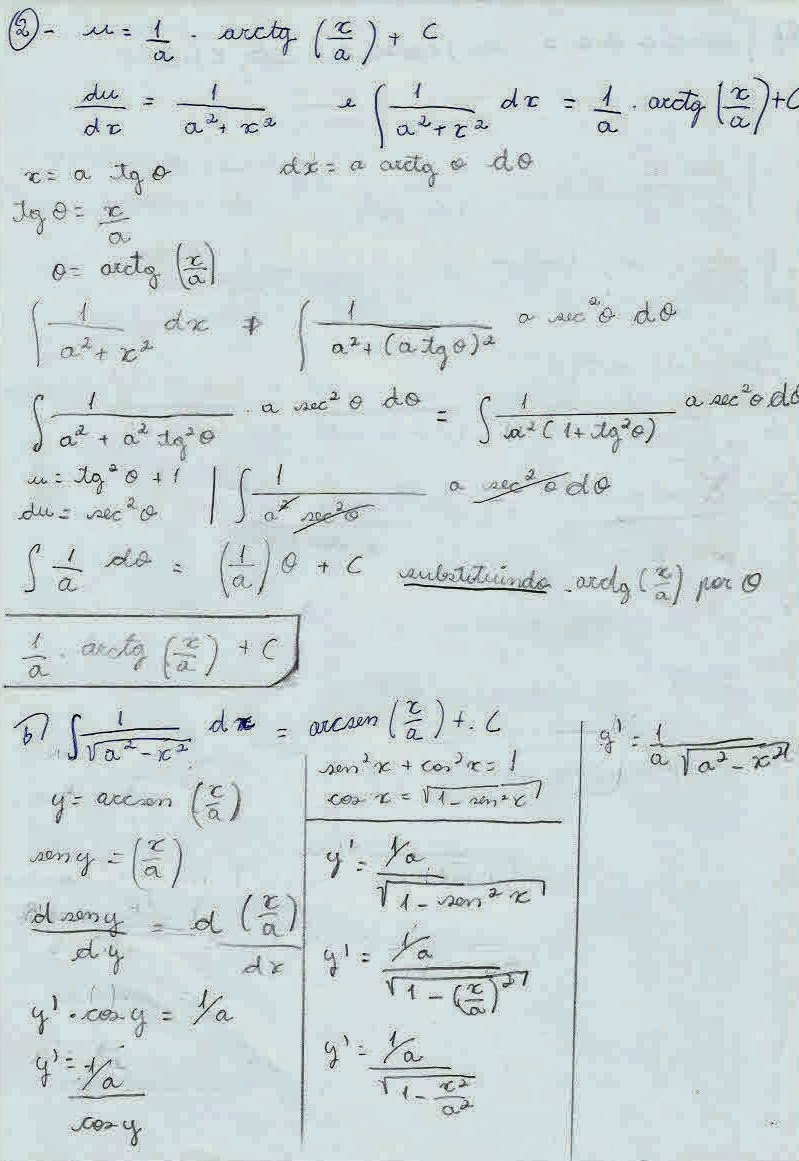 ② - u = 1/a · arctg (x/a) + C
du/dx = 1/(a² + x²) e ∫ 1/(a² + x²) dx = 1/a · arctg (x/a) + C
x = a tg θ dx = a arctg θ dθ
tg θ = x/a
θ = arctg (x/a)
∫ 1/(a² + x²) dx ∫ 1/(a² + (a tg θ)²) a sec² θ dθ
∫ 1/(a² + a² tg² θ) · a sec² θ dθ = ∫ 1/(a² (1 + tg² θ)) a sec² θ dθ
u = tg² θ + 1 | ∫ 1/(a² sec² θ) a sec² θ dθ
du = sec² θ
∫ 1/a dθ = (1/a) θ + C substituindo . arctg (x/a) por θ
1/a · arctg (x/a) + C
b) ∫ 1/√(a² - x²) dx = arcsen (x/a) + . C
y = arcsen (x/a)
sen y = (x/a)
d sen y/dy = d (x/a)/dx
y' · cos y = 1/a
y' = 1/a / cos y
sen² x + cos² x = 1
cos x = √(1 - sen² x)
y' = 1/a / √(1 - sen² x)
y' = 1/a / √(1 - (x/a)²)
y' = 1/a / √(1 - x²/a²)
y' = 1/a √(a² - x²)